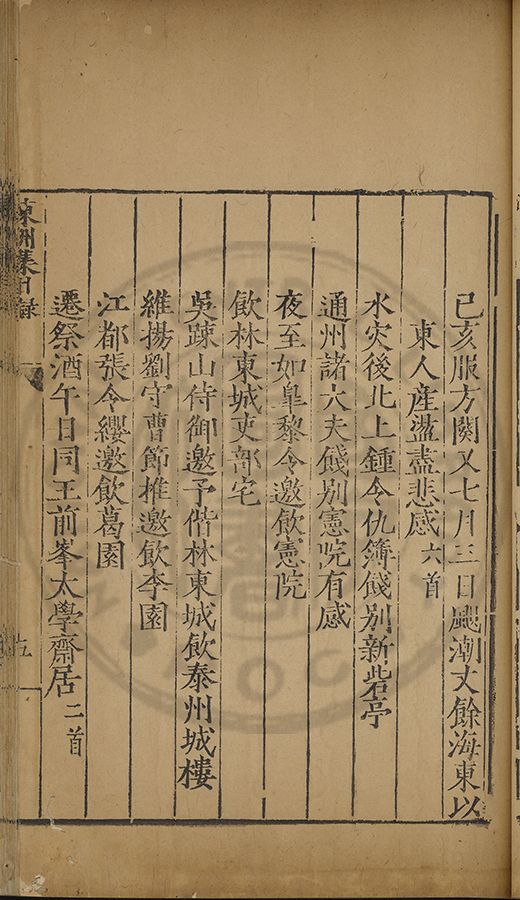 己亥服方闋又七月三日颶潮丈餘海東以
東人産盪盡悲感六首
水災後北上鍾令仇簿餞別新砦亭
通州諸大夫餞別憲院有感
夜至如臯黎令邀飲憲院
飲林東城吏部宅
吳踈山侍御邀予偕林東城飲泰州城樓
維揚劉守曹節推邀飲李園
江都張令纓邀飲葛園
遷祭酒午日同王前峯太學齋居二首
東洲集目録